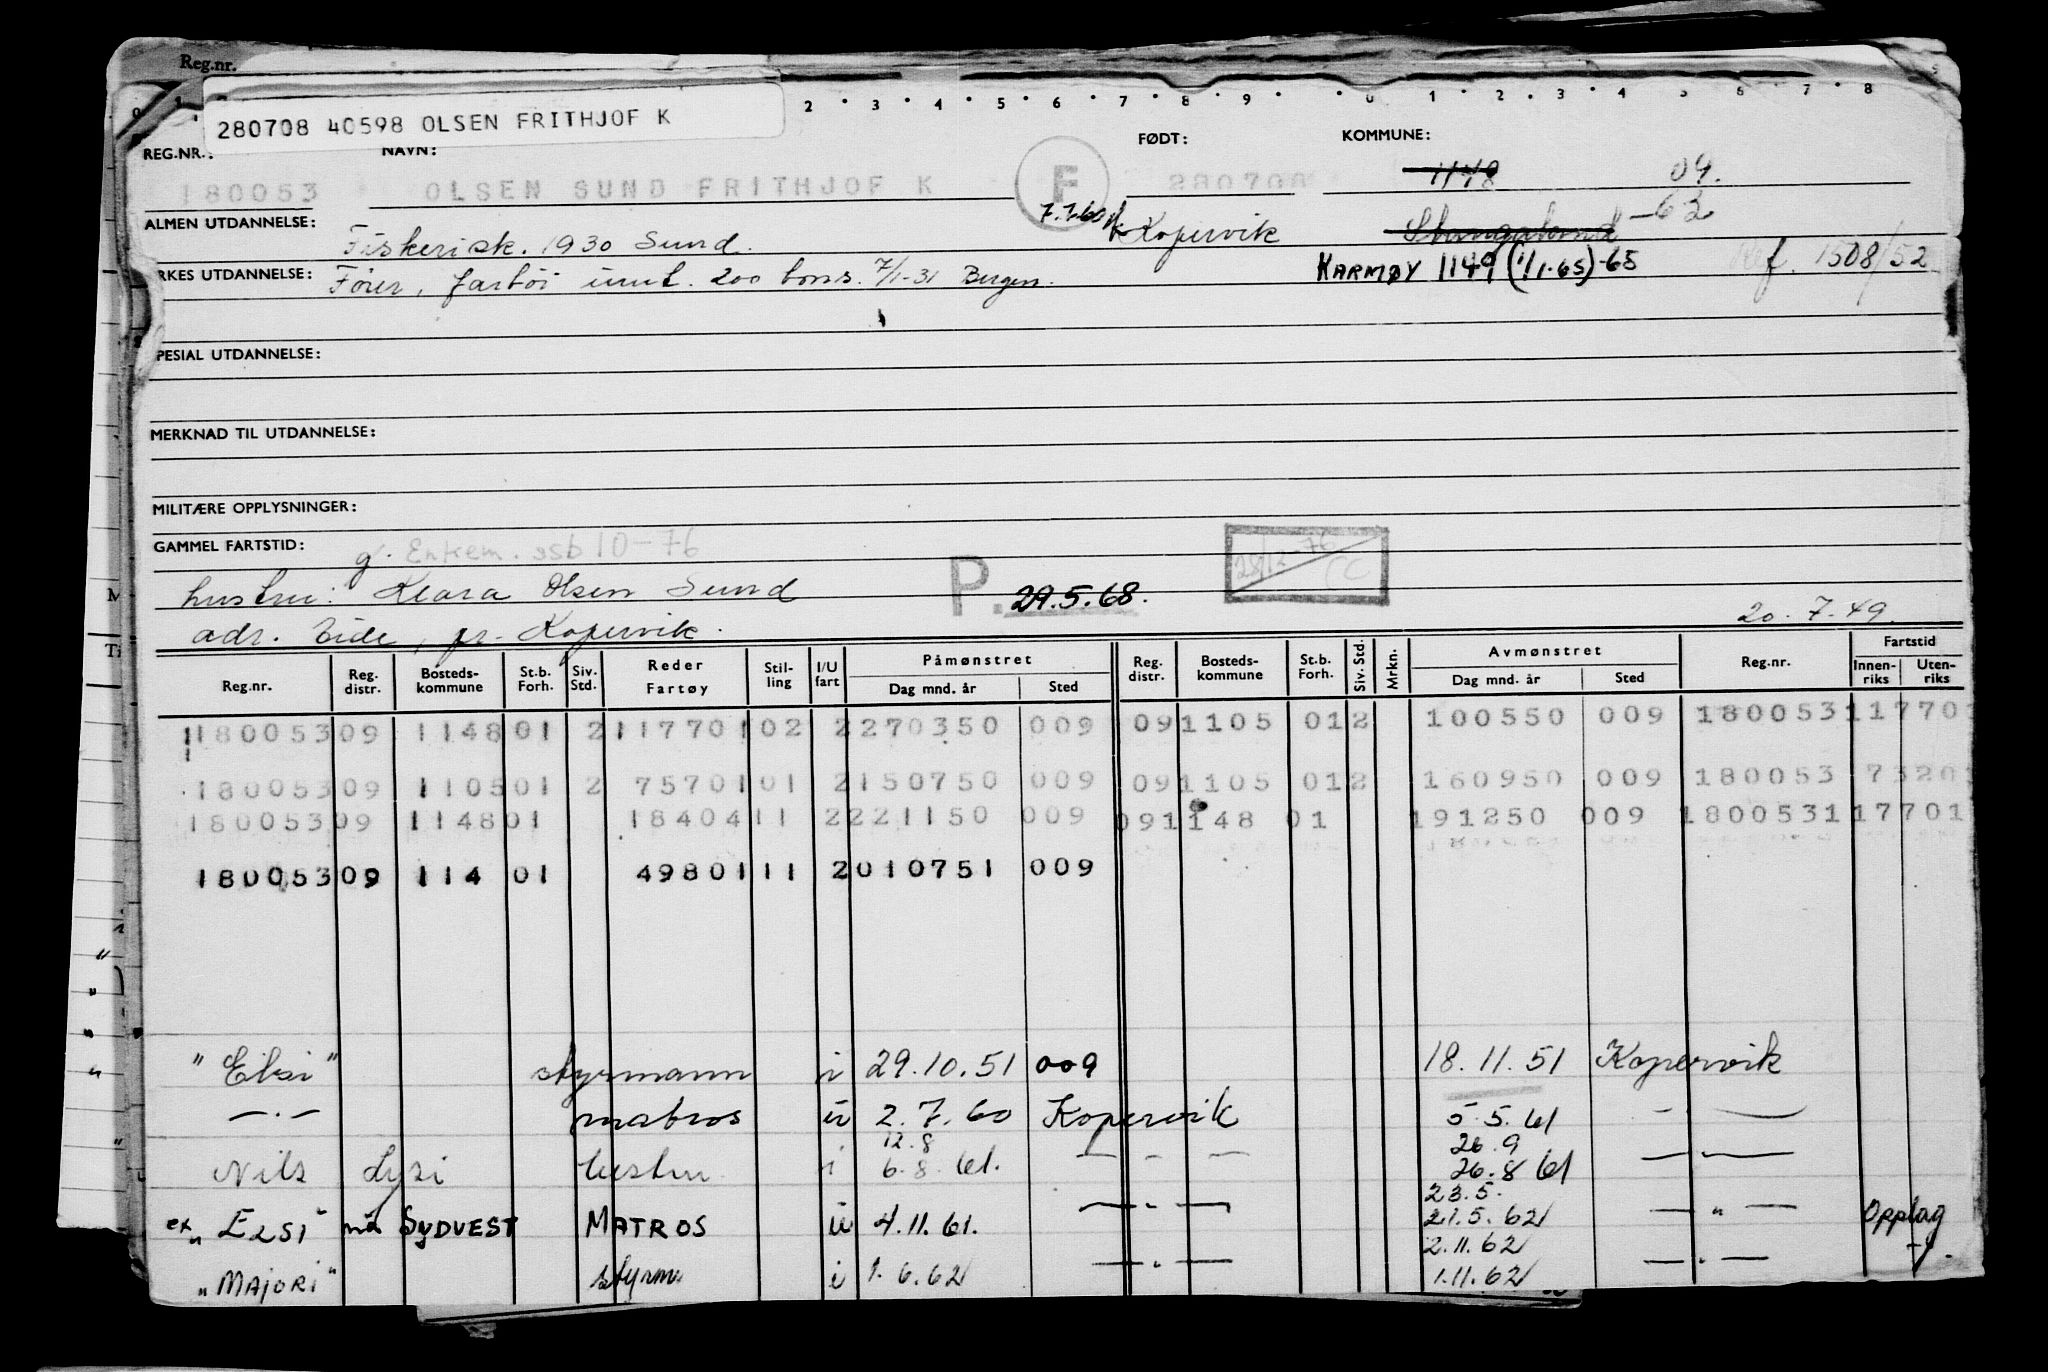 Reg.nr.
280708 40598 OLSEN FRITHJOF K
2 · 3 · 4 · 5 · 6 · 7 · 8 · 9 · 0 1 · 2 · 3 · 4 5 6 · 7 · 8
REG.NR.: NAVN: FØDT: KOMMUNE:
180053 OLSEN SUND FRITHJOF K F 280708 1148 09.
ALMEN UTDANNELSE: Fiskerisk. 1930 Sund. 7.7.60 Kopervik Stangaland -62
RKES UTDANNELSE: Fører, fartöi innt. 200 tons. 7/1-31 Bergen. KARMØY 1149 (1/1-65) -65 Ref. 1508/52
PESIAL UTDANNELSE:
MERKNAD TIL UTDANNELSE:
MILITÆRE OPPLYSNINGER:
GAMMEL FARTSTID: g. Enkem. ssb 10-76
28/12-76 CC
hustru: Klara Olsen Sund P. 29.5.68.
adr. Eide, pr. Kopervik. 20.7.49.
Reg.nr. Reg. distr. Bosteds-kommune St.b. Forh. Siv. Std. Reder Fartøy Stil-ling I/U fart Påmønstret Dag mnd. år Sted Reg. distr. Bosteds-kommune St.b. Forh. Siv. Std. Mrkn. Avmønstret Dag mnd. år Sted Reg.nr. Fartstid Innen-riks Uten-riks
180053 09 1148 01 2 117701 02 2 270350 009 09 1105 01 2 100550 009 180053 11770
180053 09 1105 01 2 75701 01 2 150750 009 09 1105 01 2 160950 009 180053 7320
180053 09 1148 01 18404 11 2 221150 009 09 1148 01 191250 009 180053 117701
180053 09 114 01 49801 11 2 010751 009
"Elsi" styrmann i 29.10.51 009 18.11.51 Kopervik
—·— matros u 2.7.60 Kopervik 5.5.61 — —
12.8 26.9
Nils Lysi i 6.8.61. — — — 26.8 61 — " —
23.5.
ex "ELSI" nå SYDVEST MATROS u 4.11.61. — " — 21.5.62 — " — Opplag
2.11.62
"MAJORI" styrm i 1.6.62 — " — 1.11.62 — " —